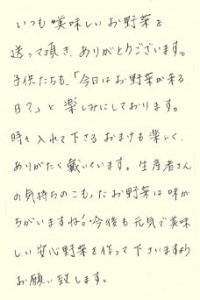 いつも美味しいお野菜を
送って頂き、ありがとうございます。
子供たちも、「今日はお野菜が来る
日?」と楽しみにしております。
時々入れて下さるおまけも楽しく、
ありがたく戴いています。生産者さん
の気持ちのこもったお野菜は味が
ちがいますね。今後も元気で美味
しい安心野菜を作って下さいますよう
お願い致します。